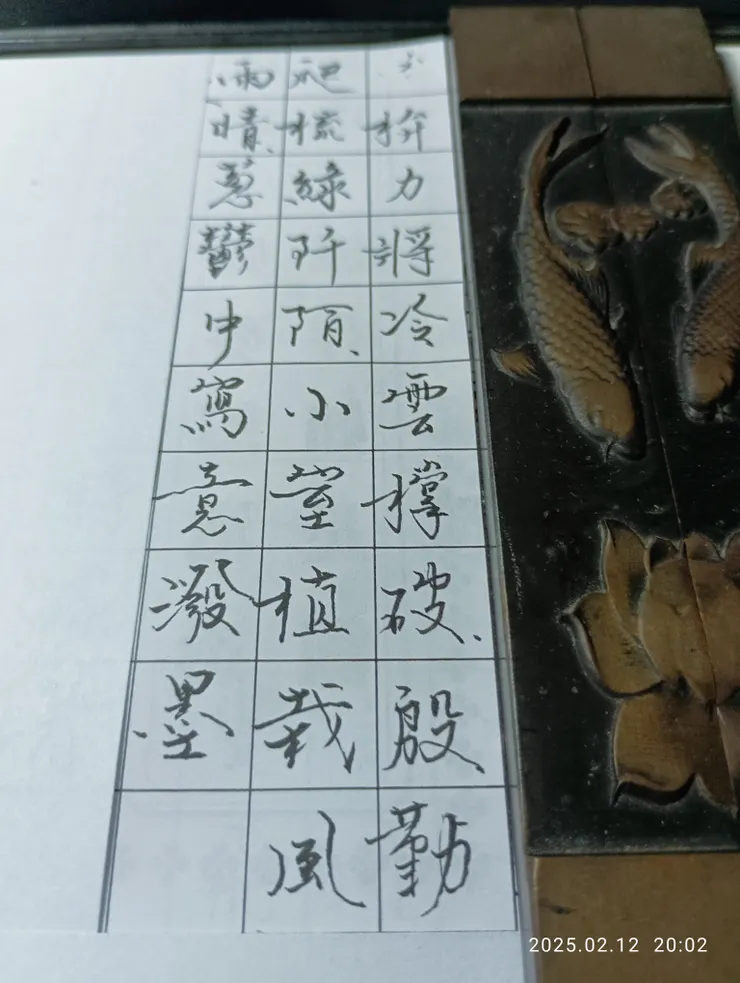 拚力將冷雲撐破、殷勤
爬梳綠阡陌、小塋植栽風
雨晴、蔥鬱中寫意潑墨
2025.02.12 20:02